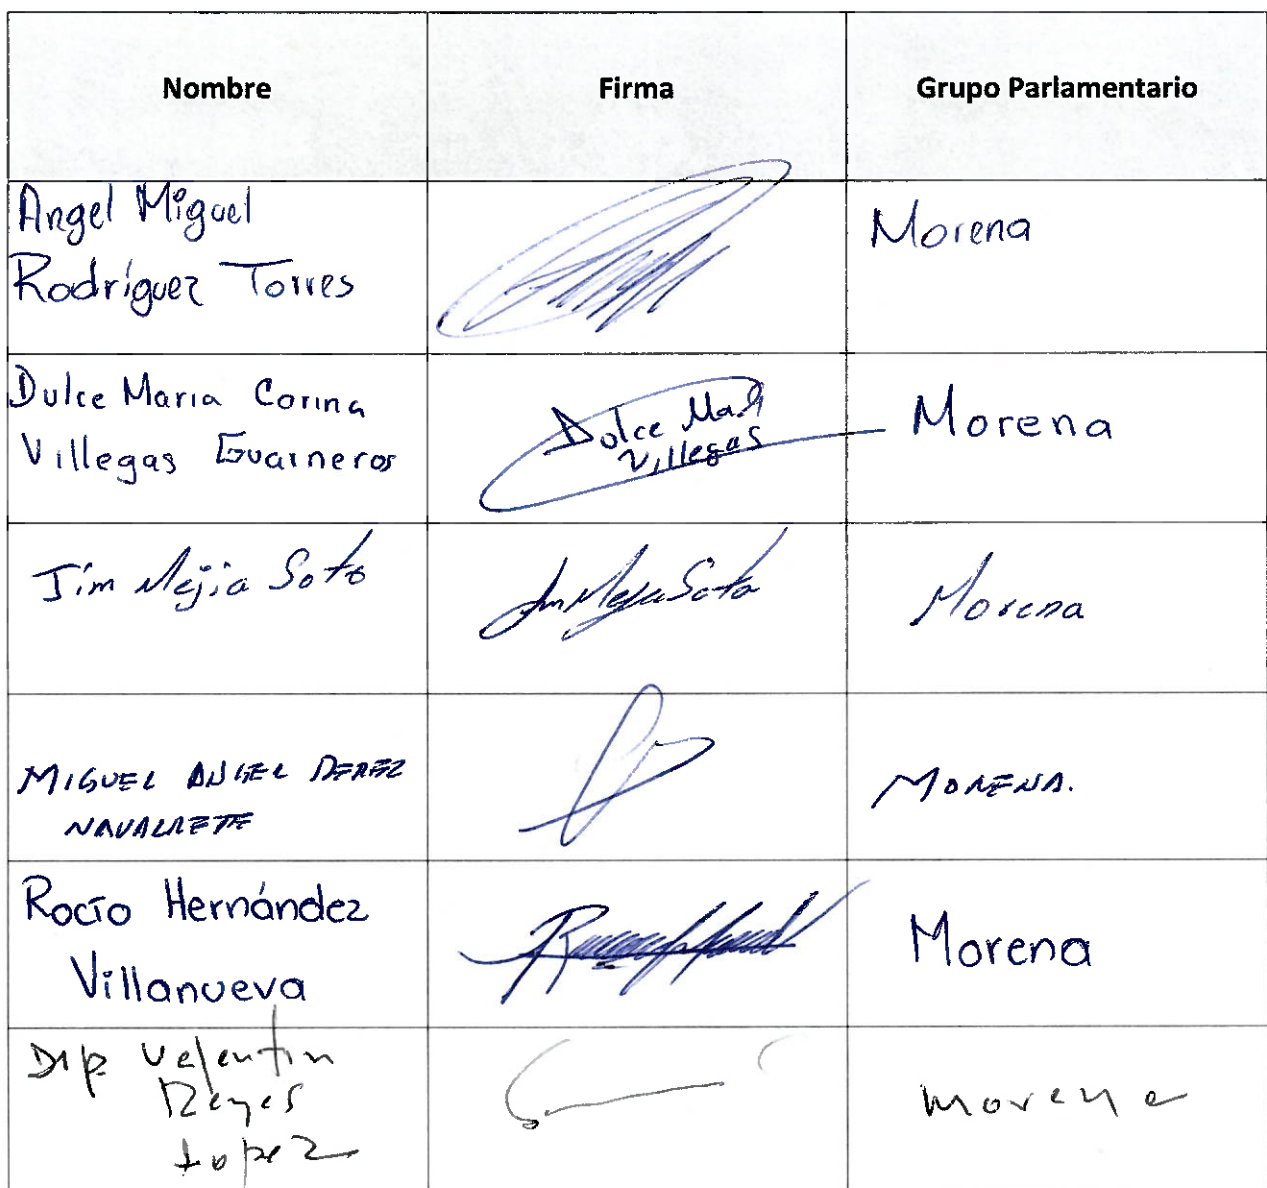 Nombre Firma Grupo Parlamentario
Angel Miguel
Rodríguez Torres
Morena
Dulce Maria Corina
Villegas Guarneros
Dulce Marí
Villegas
Morena
Jim Mejía Soto
Jim Mejía Soto
Morena
MIGUEL ANGEL PEREZ
NAVARRETE
MORENA.
Rocío Hernández
Villanueva
Morena
Dip Valentin
Reyes
Lopez
morena